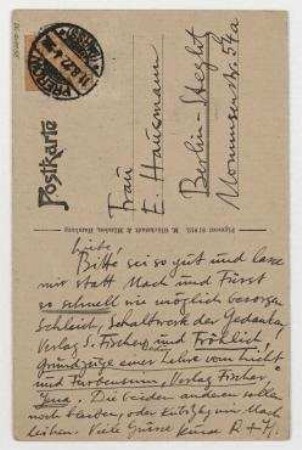 PREROW
11.8.22.4-5N
Postkarte
Frau
E. Hausmann
Berlin-Steglitz
Mommsenstr. 54a
Liebe!
Bitte sei so gut und lasse
mir statt Mach und Fürst
so schnell wie möglich besorgen
Schleich, Schaltwerk der Gedanken
Verlag S. Fischer und Fröhlich,
Grundzüge einer Lehre vom Licht
und Farbensinn, Verlag Fischer
Jena. Die beiden anderen sollen
noch bleiben, oder
leihen. Viele Grüsse Eure R + H.